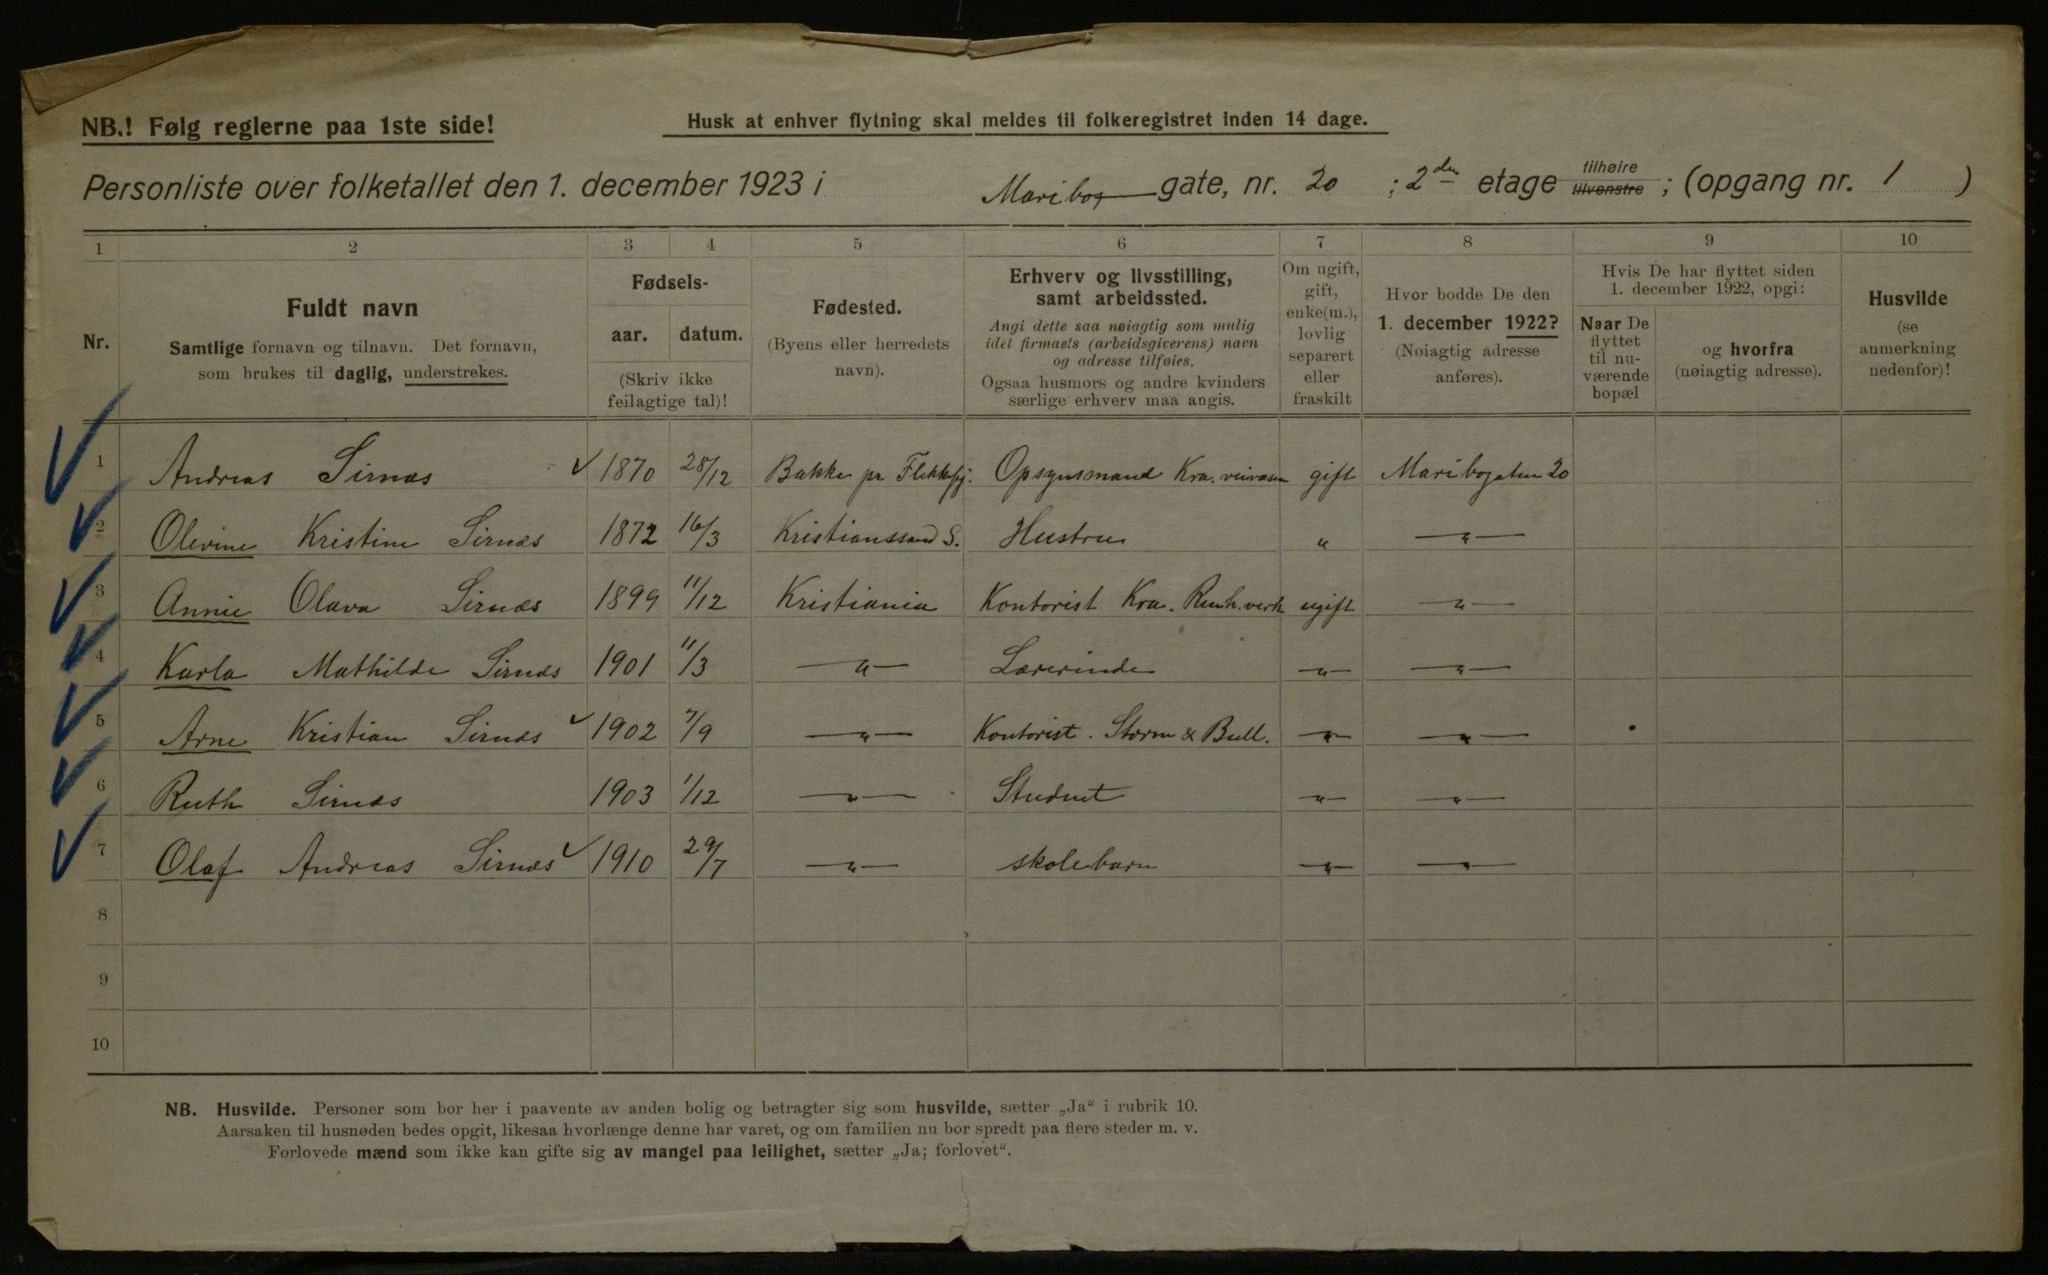 NB.! Følg reglerne paa 1ste side!
Husk at enhver flytning skal meldes til folkeregistret inden 14 dage.
Personliste over folketallet den 1. december 1923 i Maribogate, nr. 20 ; 2den etage tilhøire tilvenstre ; (opgang nr. 1 )
1 2 3 4 5 6 7 8 9 10
Nr.
Fuldt navn
Samtlige fornavn og tilnavn. Det fornavn,
som brukes til daglig, understrekes.
Fødsels-
aar. datum.
(Skriv ikke
feilagtige tal)!
Fødested.
(Byens eller herredets
navn).
Erhverv og livsstilling,
samt arbeidssted.
Angi dette saa nøiagtig som mulig
idet firmaets (arbeidsgiverens) navn
og adresse tilføies.
Ogsaa husmors og andre kvinders
særlige erhverv maa angis.
Om ugift,
gift,
enke(m.),
lovlig
separert
eller
fraskilt
Hvor bodde De den
1. december 1922?
(Nøiagtig adresse
anføres).
Hvis De har flyttet siden
1. december 1922, opgi:
Naar De
flyttet
til nu-
værende
bopæl
og hvorfra
(nøiagtig adresse).
Husvilde
(se
anmerkning
nedenfor)!
1 Andreas Sirnæs 1870 28/12 Bakke pr Flekkefj. Opsynsmand Kra. veivæsen gift Maribogaten 20
2 Olevine Kristine Sirnæs 1872 16/3 Kristianssand S. Hustru " "
3 Annie Olava Sirnæs 1899 11/12 Kristiania Kontorist Kra. Renh.verk ugift "
4 Karla Mathilde Sirnæs 1901 11/3 " Lærerinde " "
5 Arne Kristian Sirnæs 1902 7/9 " Kontorist. Storm & Bull. " "
6 Ruth Sirnæs 1903 1/12 " Student " "
7 Olaf Andreas Sirnæs 1910 29/7 " skolebarn " "
8
9
10
NB. Husvilde. Personer som bor her i paavente av anden bolig og betragter sig som husvilde, sætter „Ja“ i rubrik 10.
Aarsaken til husnøden bedes opgit, likesaa hvorlænge denne har varet, og om familien nu bor spredt paa flere steder m. v.
Forlovede mænd som ikke kan gifte sig av mangel paa leilighet, sætter „Ja; forlovet“.